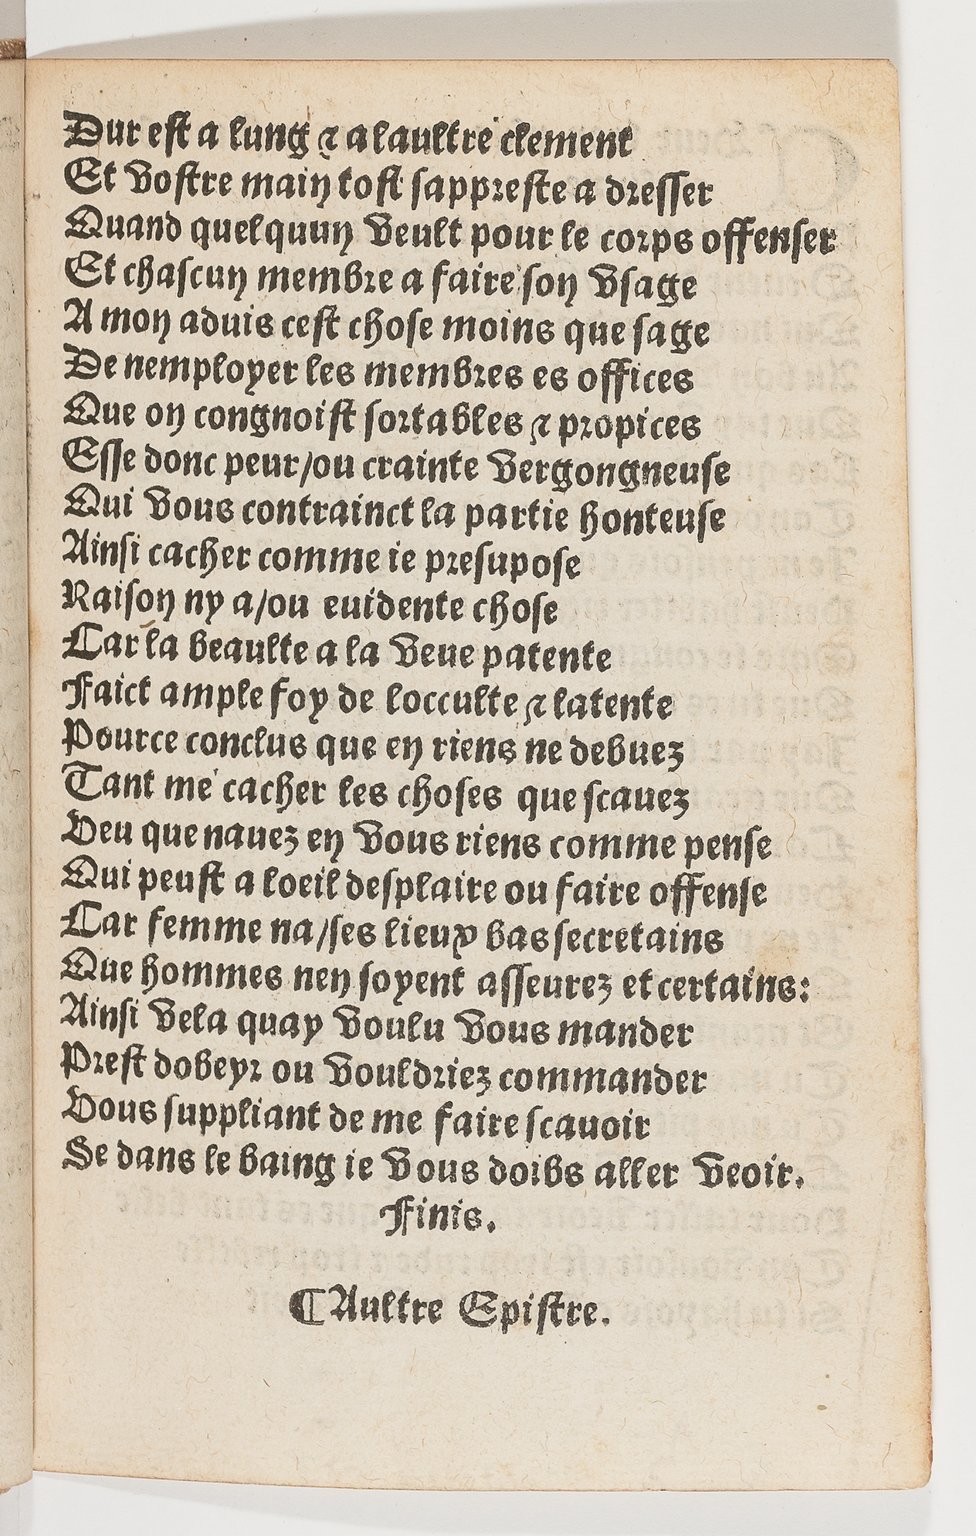 Dur est a lung ⁊ a laultre clement
Et vostre main tost sappreste a dresser
Quand quelquun veult pour le corps offenser
Et chascun membre a faire son vsage
A mon aduis cest chose moins que sage
De nemployer les membres es offices
Que on congnoist sortables ⁊ propices
Esse donc peur/ou crainte vergongneuse
Qui vous contrainct la partie honteuse
Ainsi cacher comme ie presupose
Raison ny a/ou euidente chose
Car la beaulte a la veue patente
Faict ample foy de locculte ⁊ latente
Pource conclus que en riens ne debuez
Tant me cacher les choses que scauez
Veu que nauez en vous riens comme pense
Qui peust a loeil desplaire ou faire offense
Car femme na/ses lieux bas secretains
Que hommes nen soyent asseurez et certains:
Ainsi vela quay voulu vous mander
Prest dobeyr ou vouldriez commander
Vous suppliant de me faire scauoir
Se dans le baing ie vous doibs aller veoir.
Finis.
¶ Aultre Epistre.